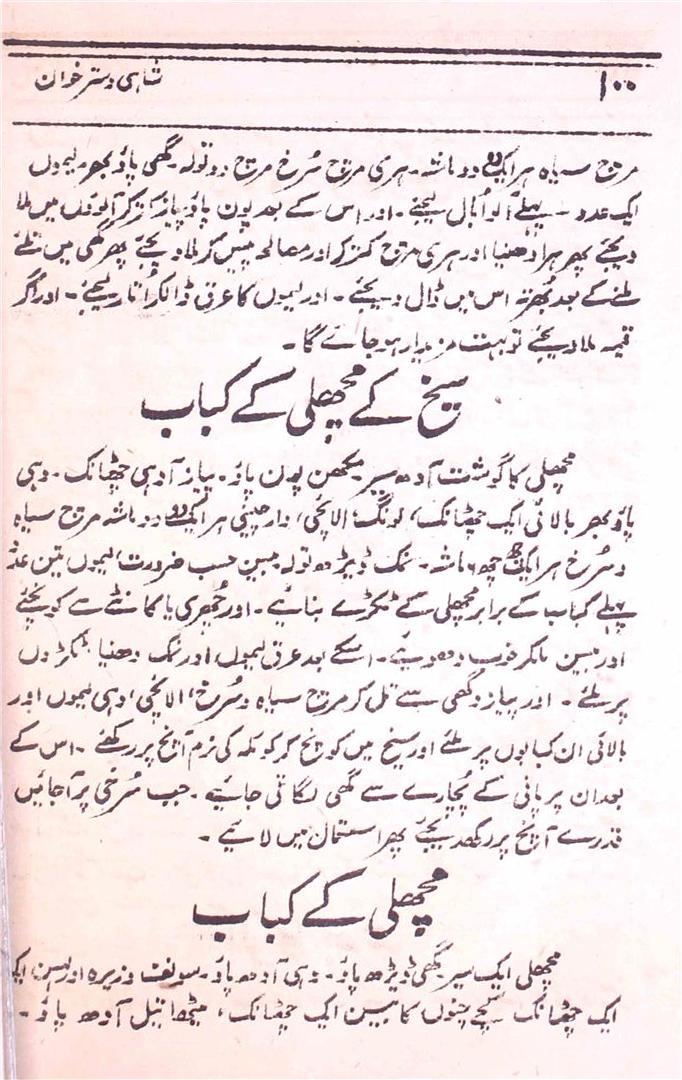 ۱۰۰ شاہی دسترخوان
مرچ سیاہ ہر ایک دو دو ماشہ۔ ہری مرچ سرخ مرچ دو تولہ۔ گھی پاؤ بھر۔ لیموں
ایک عدد۔ پہلے آلو ابال لیجئے۔ اور اس کے بعد پون پاؤ پیاز کتر کر آلوؤں میں ملا
دیجئے پھر ہرا دھنیا اور ہری مرچ کتر کر اور مصالحہ پیس کر ملا دیجئے پھر گھی میں تلئے
تلنے کے بعد بھرتہ اس میں ڈال دیجئے۔ اور لیموں کا عرق ڈالکر اتار لیجئے۔ اور اگر
قیمہ ملا دیجئے تو بہت مزیدار ہو جائے گا۔
سیخ کے مچھلی کے کباب
مچھلی کا گوشت آدھ سیر۔ مکھن پون پاؤ۔ پیاز آدھی چھٹانک۔ دہی
پاؤ بھر بالائی ایک چھٹانک، لونگ، الائچی، دارچینی ہر ایک دو دو ماشہ مرچ سیاہ
و سرخ ہر ایک چھ چھ ماشہ۔ نمک ڈیڑھ تولہ بیسن حسب ضرورت، لیموں تین عدد
پہلے کباب کے برابر مچھلی کے ٹکڑے بنائیے۔ اور چھری یا کانٹے سے کوچئے
اور بیسن ملکر خوب دھوئیے۔ اسکے بعد عرق لیموں اور نمک دھنیا ٹکڑوں
پر ملئے۔ اور پیاز و گھی سے تل کر مرچ سیاہ و سرخ، الائچی، دہی لیموں اور
بالائی ان کبابوں پر ملئے اور سیخ میں کوچ کر کوئلہ کی نرم آنچ پر رکھئے۔ اس کے
بعد ان پر پانی کے پُچارے سے گھی لگاتی جائیے۔ جب سرخی پر آجائیں
قدرے آنچ پر رکھدیجئے پھر استعمال میں لائیے۔
مچھلی کے کباب
مچھلی ایک سیر۔ گھی ڈیڑھ پاؤ۔ دہی آدھ پاؤ۔ سونف و زیرہ اور لہسن ایک
ایک چھٹانک کچے چنوں کا بیسن ایک چھٹانک، میٹھا تیل آدھ پاؤ۔